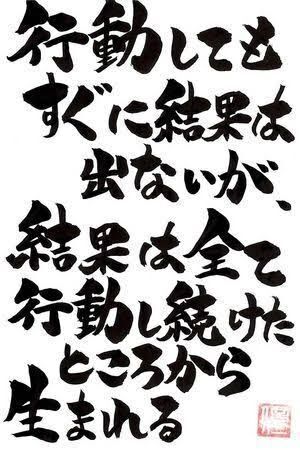 行動しても
すぐに結果は
出ないが、
結果は全て
行動し続けた
ところから
生まれる